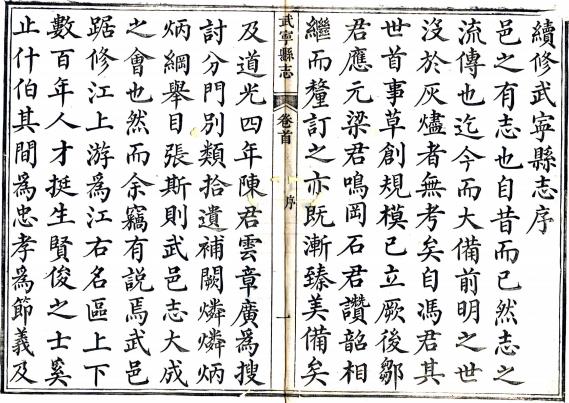 續修武寧縣志序
邑之有志也自昔而已然志之
流傳也迄今而大備前明之世
沒於灰燼者無考矣自馮君其
世首事草創規模已立厥後鄒
君應元梁君鳴岡石君讚韶相
繼而釐訂之亦既漸臻美備矣
武寧縣志
卷首
序
一
及道光四年陳君雲章廣為搜
討分門別類拾遺補闕燐燐炳
炳綱舉目張斯則武邑志大成
之會也然而余竊有説焉武邑
踞修江上游為江右名區上下
數百年人才挺生賢俊之士奚
止什伯其間爲忠孝爲節義及